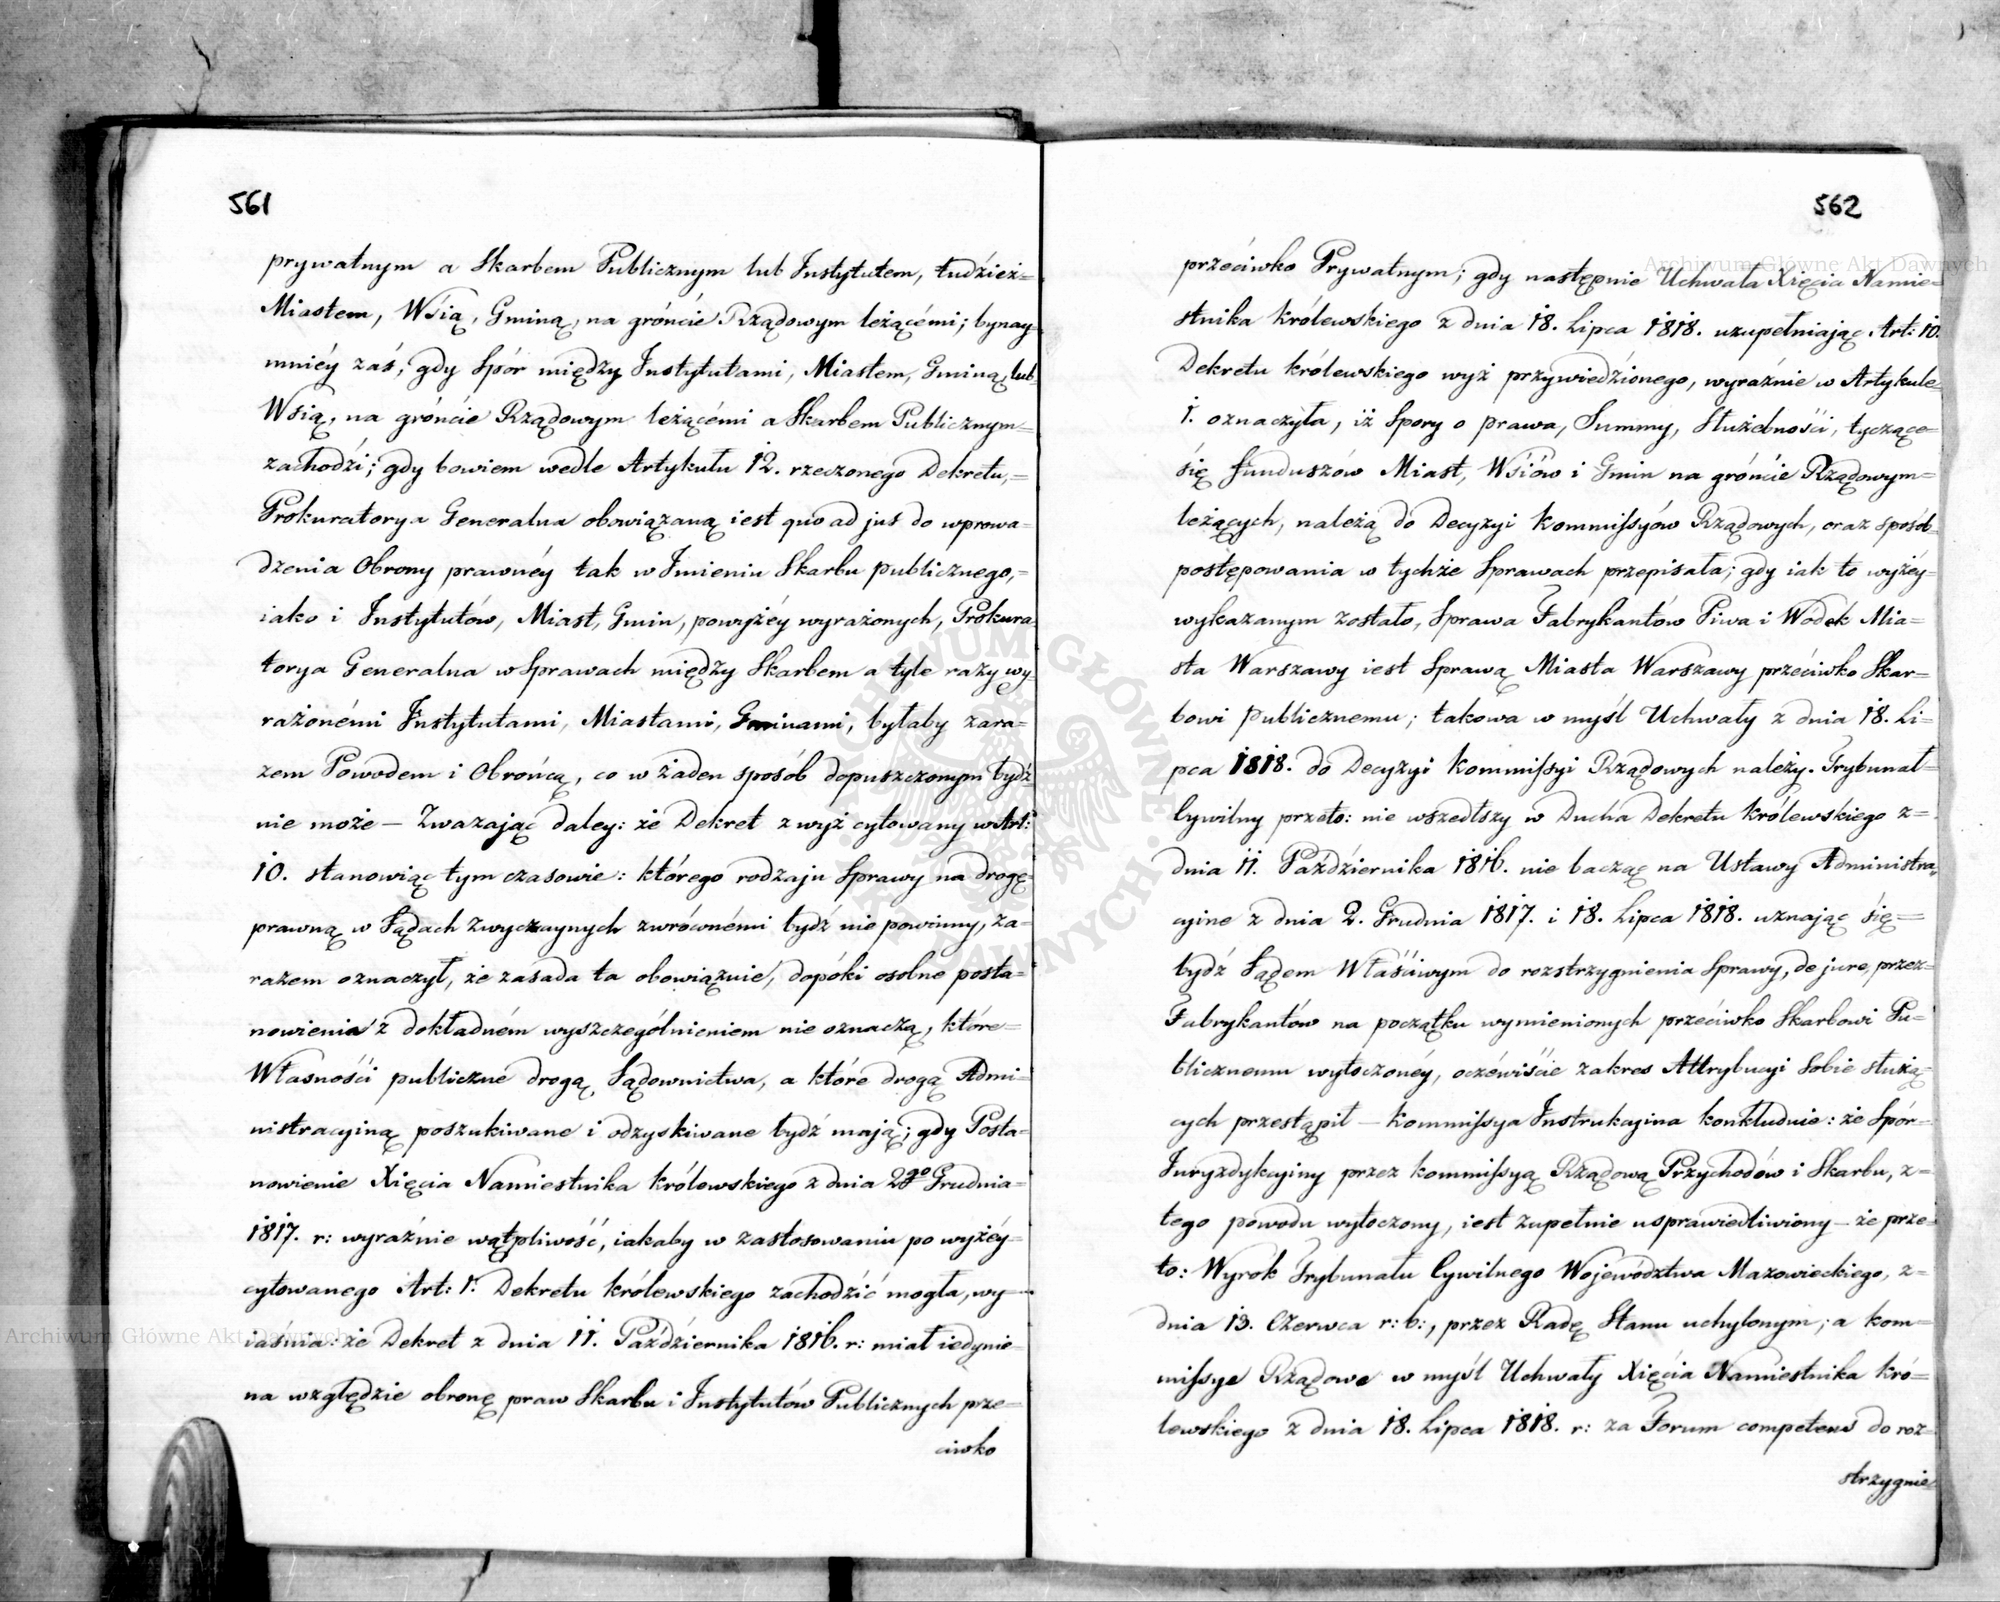 561
prywatnym a Skarbem Publicznym lub Instytutem, tudzież=
Miastem, Wsią, Gminą, na gróncie Rządowym leżącémi; bynay=
mniéy zaś, gdy Spór między Instytutami, Miastem, Gminą, lub
Wsią, na gróncie Rządowym leżącémi a Skarbem Publicznym=
zachodźi; gdy bowiem wedle Artykułu 12. rzeczonego Dekretu,=
Prokuratorya Generalna obowiązaną iest quo ad jus do wprowa=
dzenia Obrony prawnéy tak w Imieniu Skarbu publicznego,=
iako i Instytutów, Miast, Gmin, powyżéy wyrażonych, Prokura=
torya Generalna w Sprawach między Skarbem a tyle razy wy=
rażonémi Instytutami, Miastami, Gminami, byłaby zara=
zem Powodem i Obrońcą, co w żaden sposób dopuszczonym bydź
nie może — Zważając daley: że Dekret zwyż cytowany w Art:
10. stanowiąc tym czasowie: którego rodzaju Sprawy na drogę
prawną w Sądach zwyczaynych zwrócnémi bydź nie powinny, za=
razem oznaczył, że zasada ta obowiązuie, dopóki osobne posta=
nowienia z dokładném wyszczególnieniem nie oznaczą, które=
Własnośći publiczné drogą Sądownictwa, a które drogą Admi=
nistracyiną poszukiwane i odzyskiwane bydź mają; gdy Posta=
nowienie Xięcia Namiestnika Królewskiego z dnia 2go Grudnia=
1817. r: wyraźnie wątpliwość, iakaby w zastosowaniu po wyżéy=
cytowanego Art: 1. Dekretu królewskiego zachodźić mogła, wy=
iaśnia: że Dekret z dnia 11. Paźdźiernika 1816. r: miał iedynie
na względzie obronę praw Skarbu i Instytutów Publicznych prze=
ciwko
562
przećiwko Prywatnym; gdy następnie Uchwała Xięcia Namie=
stnika Królewskiego z dnia 18. Lipca 1818. uzupełniając Art: 10.
Dekretu królewskiego wyż przywiedźionego, wyraźnie w Artykule
1. oznaczyła, iż Spory o prawa, Summy, Służebnośći, tyczące=
się funduszów Miast, Wśiów i Gmin na gróncie Rządowym=
leżących, należą do Decyzyi Kommissyów Rządowych, oraz sposób=
postępowania w tychże Sprawach przepisała; gdy iak to wyżéy=
wykazanym zostało, Sprawa Fabrykantów Piwa i Wódek Mia=
sta Warszawy iest Sprawą Miasta Warszawy przećiwko Skar=
bowi Publicznemu; takowa w myśl Uchwały z dnia 18. Li=
pca 1818. do Decyzyi Kommissyi Rządowych należy. Trybunał=
Cywilny przeto: nie wszedłszy w Ducha Dekretu Królewskiego z=
dnia 11. Paźdźiernika 1816. nie bacząc na Ustawy Administra=
cyine z dnia 2. Grudnia 1817. i 18. Lipca 1818. uznając się=
bydź Sądem Właśćiwym do rozstrzygnienia Sprawy, de jure, przez=
Fabrykantów na początku wymienionych przećiwko Skarbowi Pu=
blicznemu wytoczonéy, oczéwiśćie zakres Attrybucyi Sobie służą=
cych przestąpił — Kommissya Instrukcyina konkluduie: że Spór=
Juryzdykcyiny przez Kommissyą Rządową Przychodów i Skarbu, z=
tego powodu wytoczony, iest zupełnie usprawiedliwiony — że prze=
to: Wyrok Trybunału Cywilnego Województwa Mazowieckiego, z=
dnia 13. Czerwca r: b:, przez Radę Stanu uchylonym; a Kom=
missye Rządowe w myśl Uchwały Xięćia Namiestnika Kró=
lewskiego z dnia 18. Lipca 1818. r: za Forum competens do roz=
strzygnie=
Archiwum Główne Akt Dawnych
Archiwum Główne Akt Dawnych
ARCHIWUM GŁÓWNE AKT DAWNYCH